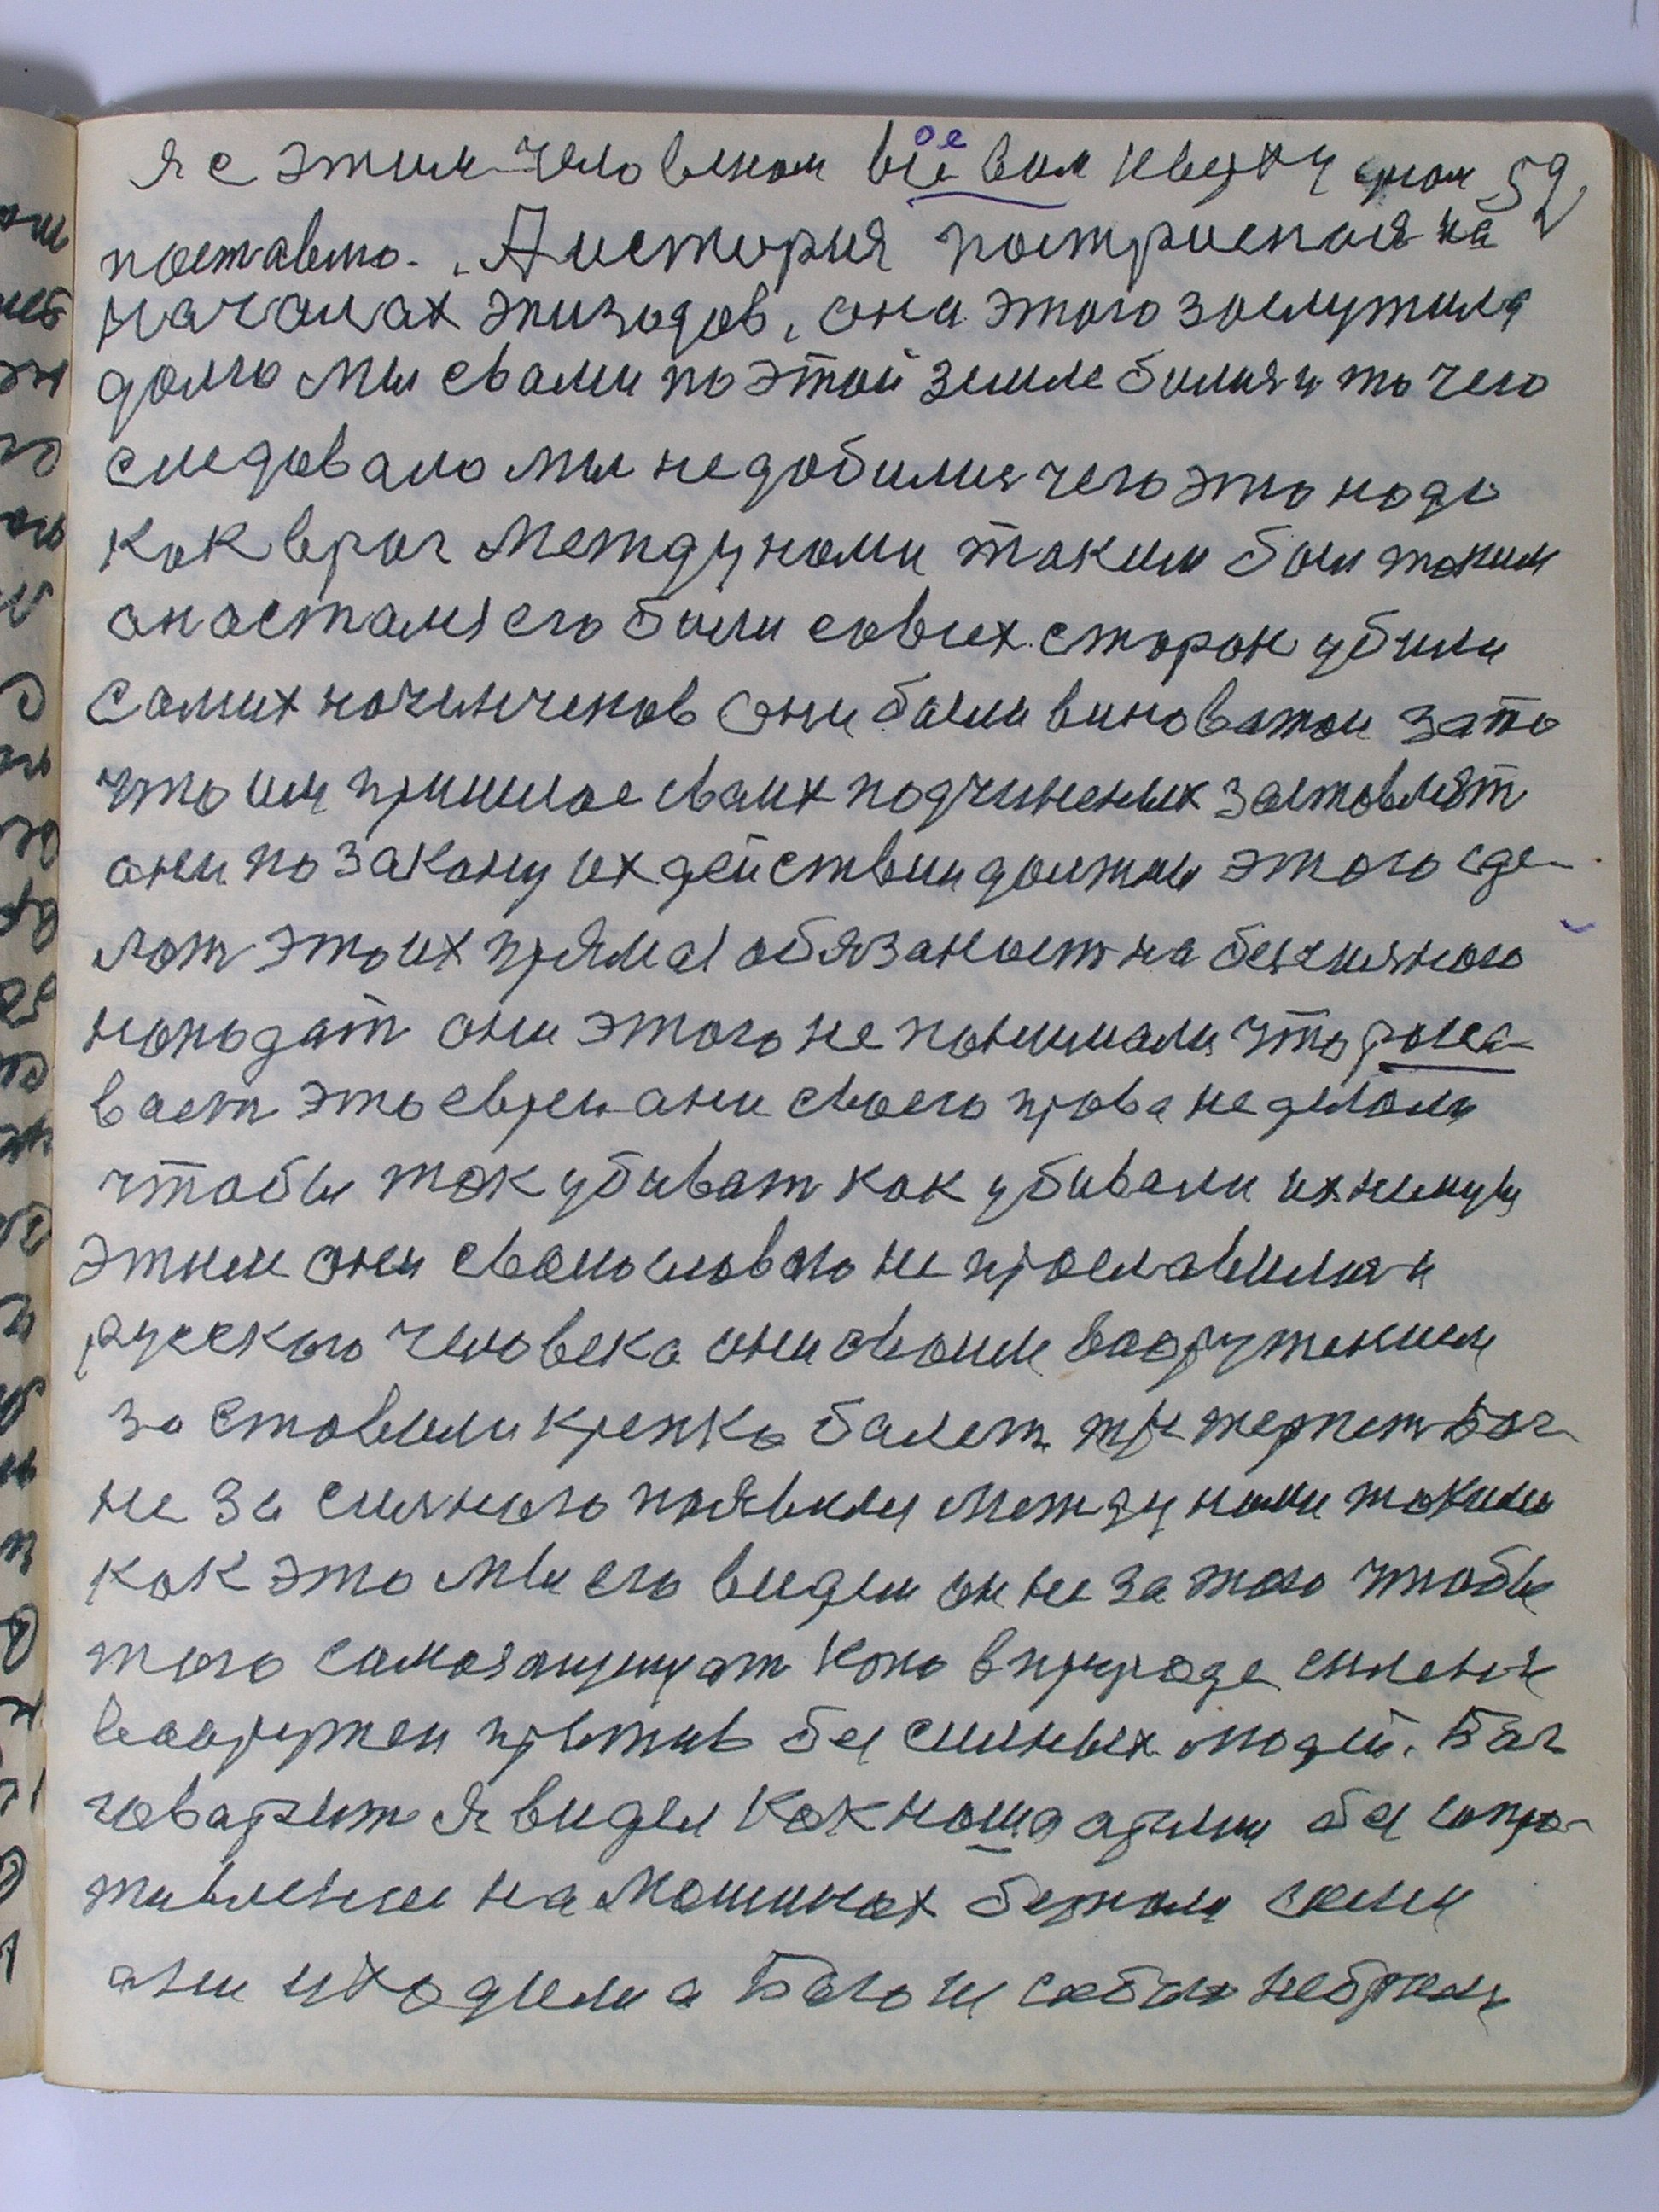 я с этим человеком всё вам кверху дном 59
поставлю. А история построеная на
началах эпизодов, она этого заслужила
долго мы свами по этой земле билися то чего
следовало мы недобилися чего это надо
как враг между нами таким был таким
он остался его били совсех сторон убили
самих начинчеков они были виноватои зато
что им пришлос сваих подчиненых заставлят
они по закону их действии должны этого зде-
лат это их прямая обязаност на бессилного
нападат они этого не понимали что
вает это евреи они своего права неделали
чтобы так убиват как убивали их
этим они свою не прославилися и
русского человека они своим вооружением
заставили крепко балет терпет Бог
не за силного появился между нами таким
как это мы его видем он не за того чтобы
того самозащищат кто в природе силен и
вооружен против бессилных людей. Бог
говарит я видел как наша армия бес сопро-
тивления на машинах бежали сами
они уходили а Бога ис собою небрали